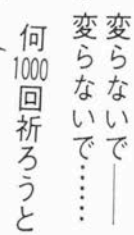 変らないで――
変らないで……
何1000回祈ろうと